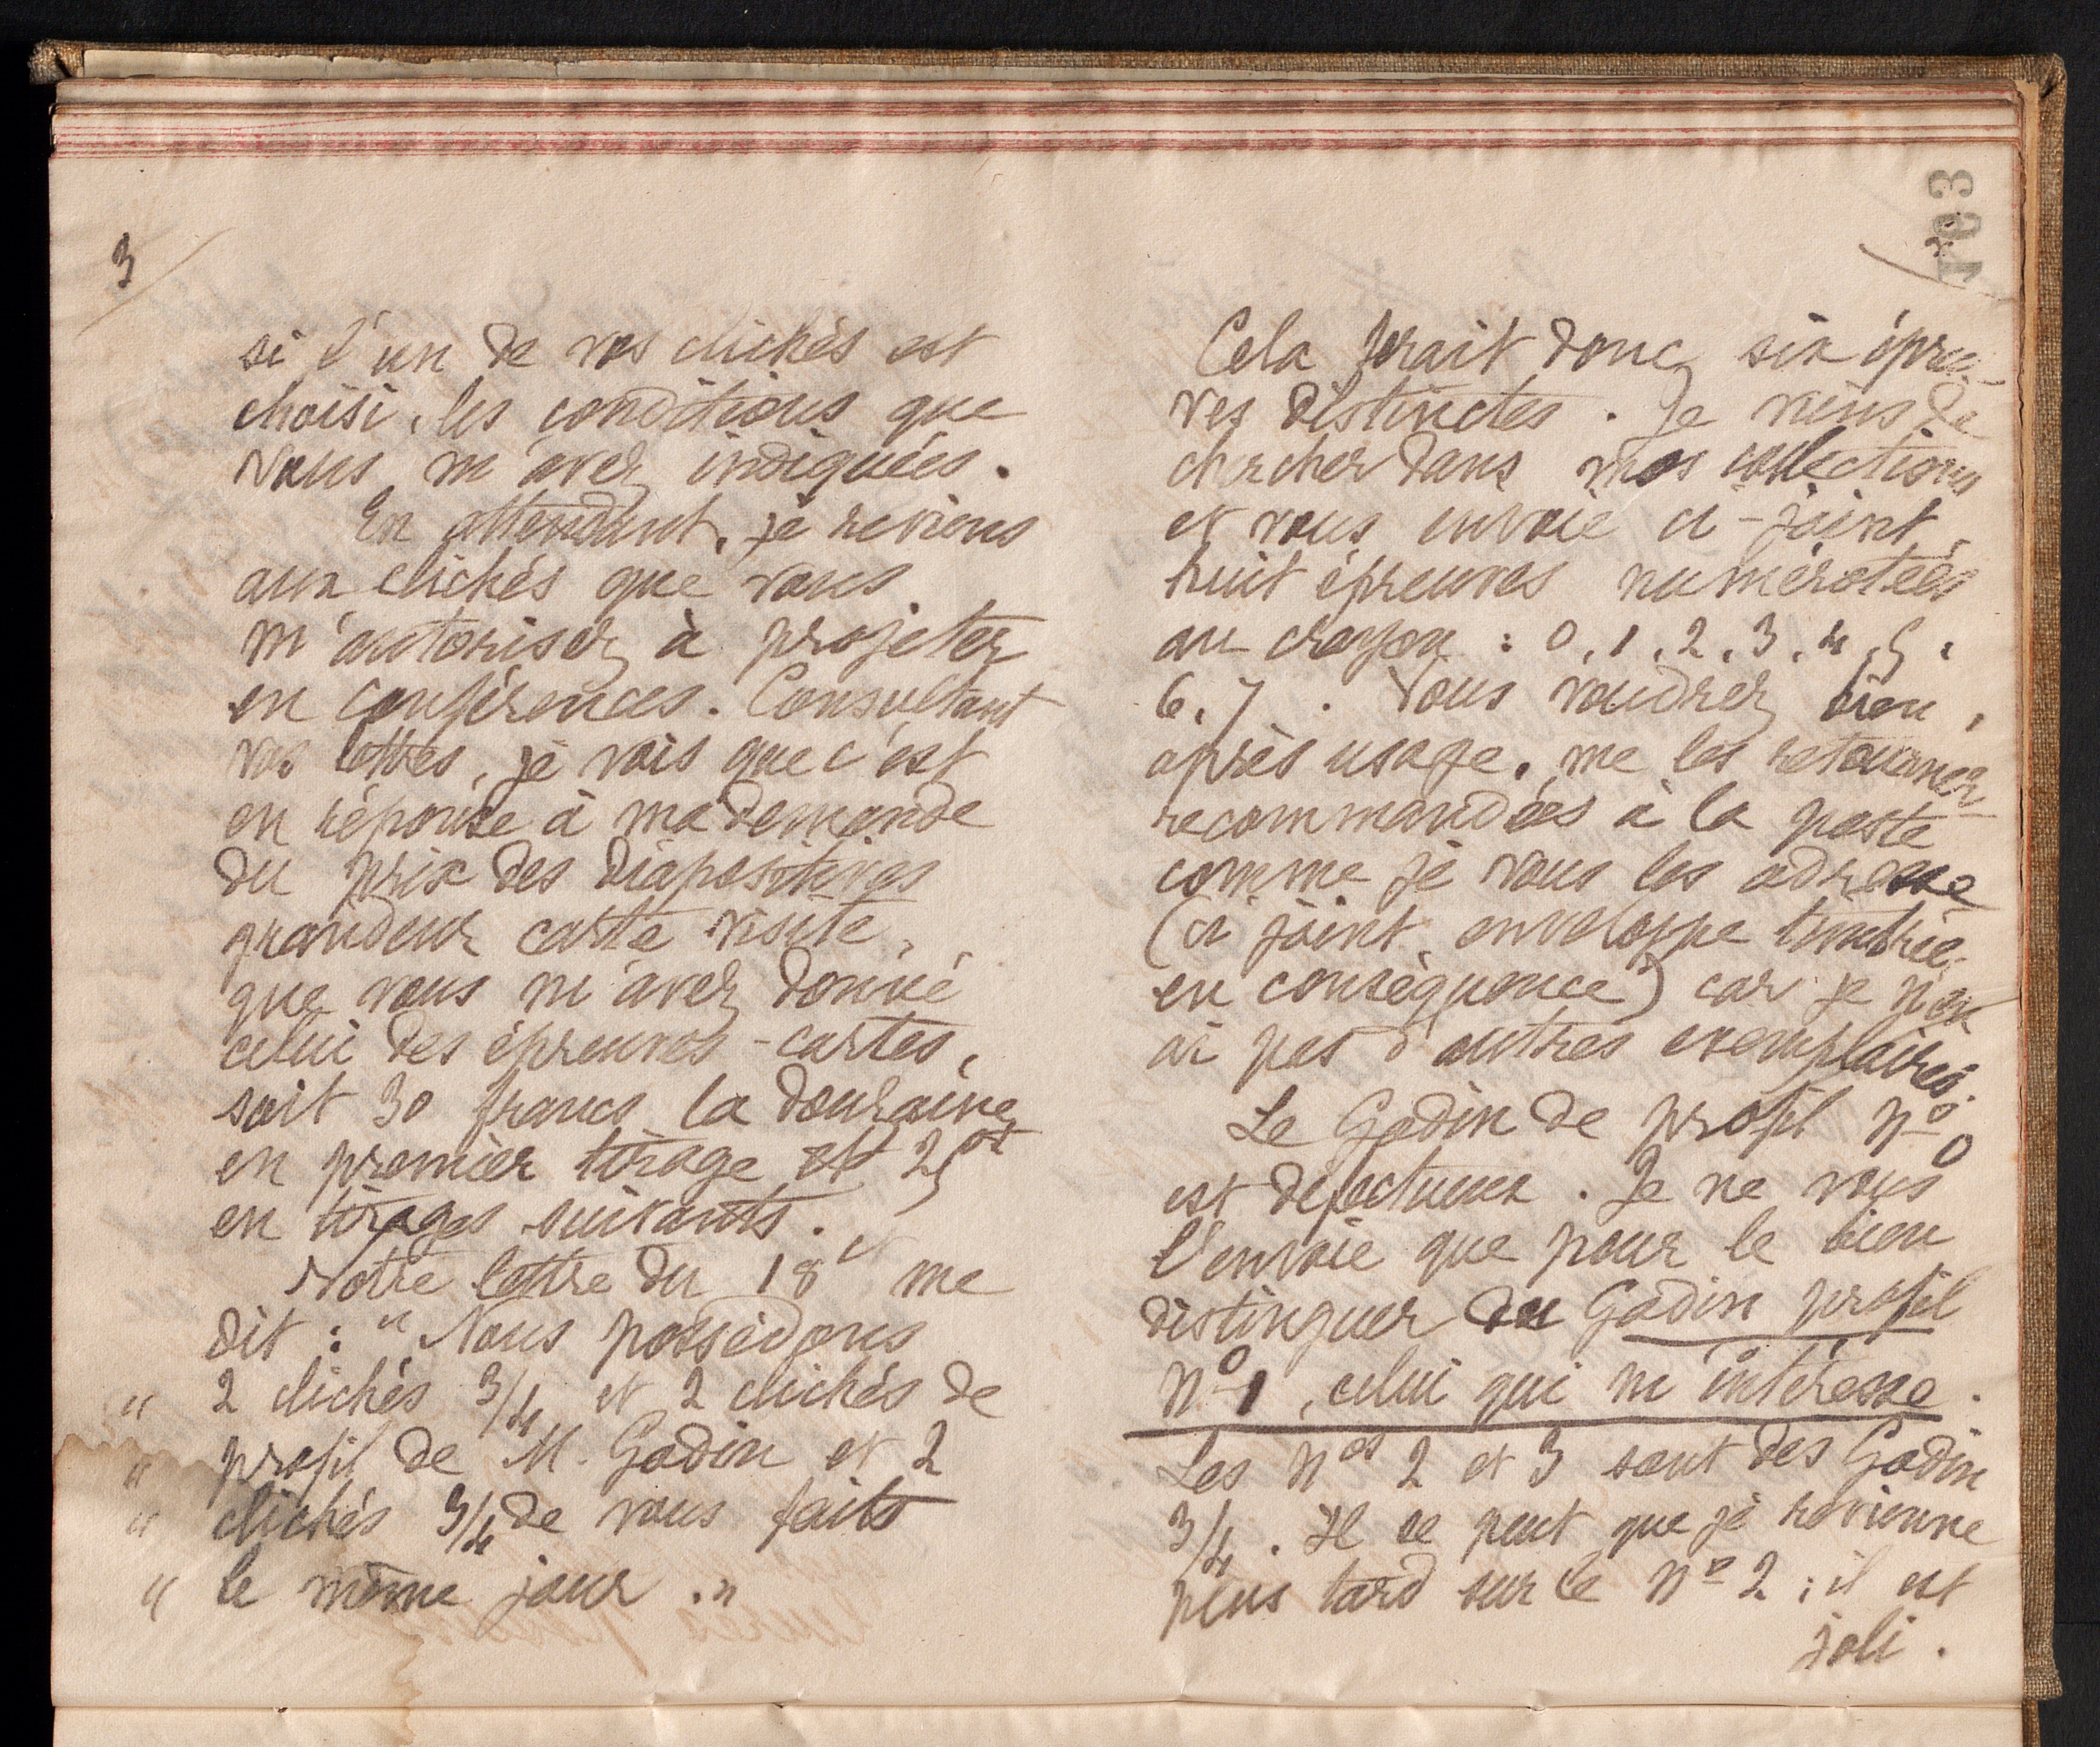 3
si l'un de vos clichés est
choisi, les conditions que
vous m'avez indiquées.
En attendant, je reviens
aux clichés que vous
m'autorisez à projeter
en conférences. Consultant
vos lettres, je vois que c'est
en réponse à ma demande
du prix des diapositives
grandeur carte visite,
que vous m'avez donné
celui des épreuves-cartes,
soit 30 francs la douzaine
en premier tirage et 25
en tirages suivants.
Votre lettre du 18 et me
dit : " Nous possédons
" 2 clichés 3/4 et 2 clichés de
" profil de M. Godin et 2
" clichés 3/4 de vous faits
" le même jour . "
103
Cela ferait donc six épreu-
ves distinctes. Je viens de
chercher dans mes collections
et vous envoie ci-joint
huit épreuves numérotées
au crayon : 0, 1, 2, 3, 4, 5,
6, 7. Vous voudrez bien,
après usage, me les retourner
recommandées à la poste
comme je vous les adresse
(ci joint enveloppe timbrée
en conséquence) car je n'en
ai pas d'autres exemplaires.
Le Godin de profil n° 0
est défectueux. Je ne vous
l'envoie que pour le bien
distinguer du Godin profil
n° 1, celui qui m'intéresse.
Les nos 2 et 3 sont des Godin
3/4. Il se peut que je revienne
plus tard sur le n° 2 ; il est
joli.